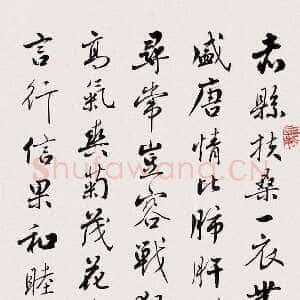 赤縣扶桑一衣
盛唐情比肺肝
尋常豈容戰
高氣爽菊茂花
言行信果和睦
Shufawang.CN